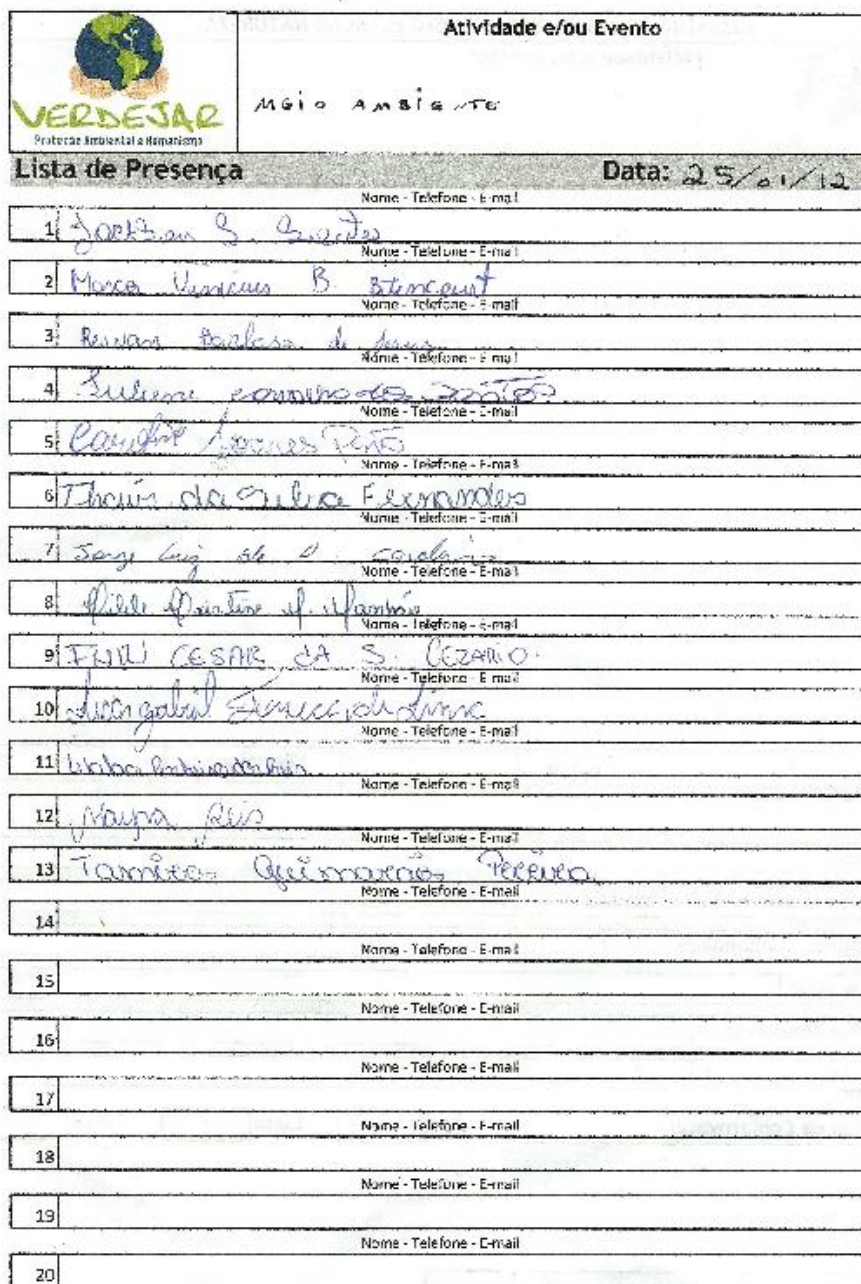 Atividade e/ou Evento
VERDEJAR
Proteção Ambiental e Humanismo
MEIO AMBIENTE
Lista de Presença Data: 25/01/12
Nome - Telefone - E-mail
1 Jackson S. Santos
Nome - Telefone - E-mail
2 Marcos Vinicius B. Bitencourt
Nome - Telefone - E-mail
3 Renan Barbosa de Jesus
Nome - Telefone - E-mail
4 dos Santos
Nome - Telefone - E-mail
5 Caroline Soares
Nome - Telefone - E-mail
6 Thais da Silva Fernandes
Nome - Telefone - E-mail
7 Jorge Luiz de O. Cordeiro
Nome - Telefone - E-mail
8
Nome - Telefone - E-mail
9 CESAR DA S. CEZARIO.
Nome - Telefone - E-mail
10 gabriel de Lima
Nome - Telefone - E-mail
11
Nome - Telefone - E-mail
12 Mayra Reis
Nome - Telefone - E-mail
13 Tamires Guimarães Pereira
Nome - Telefone - E-mail
14
Nome - Telefone - E-mail
15
Nome - Telefone - E-mail
16
Nome - Telefone - E-mail
17
Nome - Telefone - E-mail
18
Nome - Telefone - E-mail
19
Nome - Telefone - E-mail
20